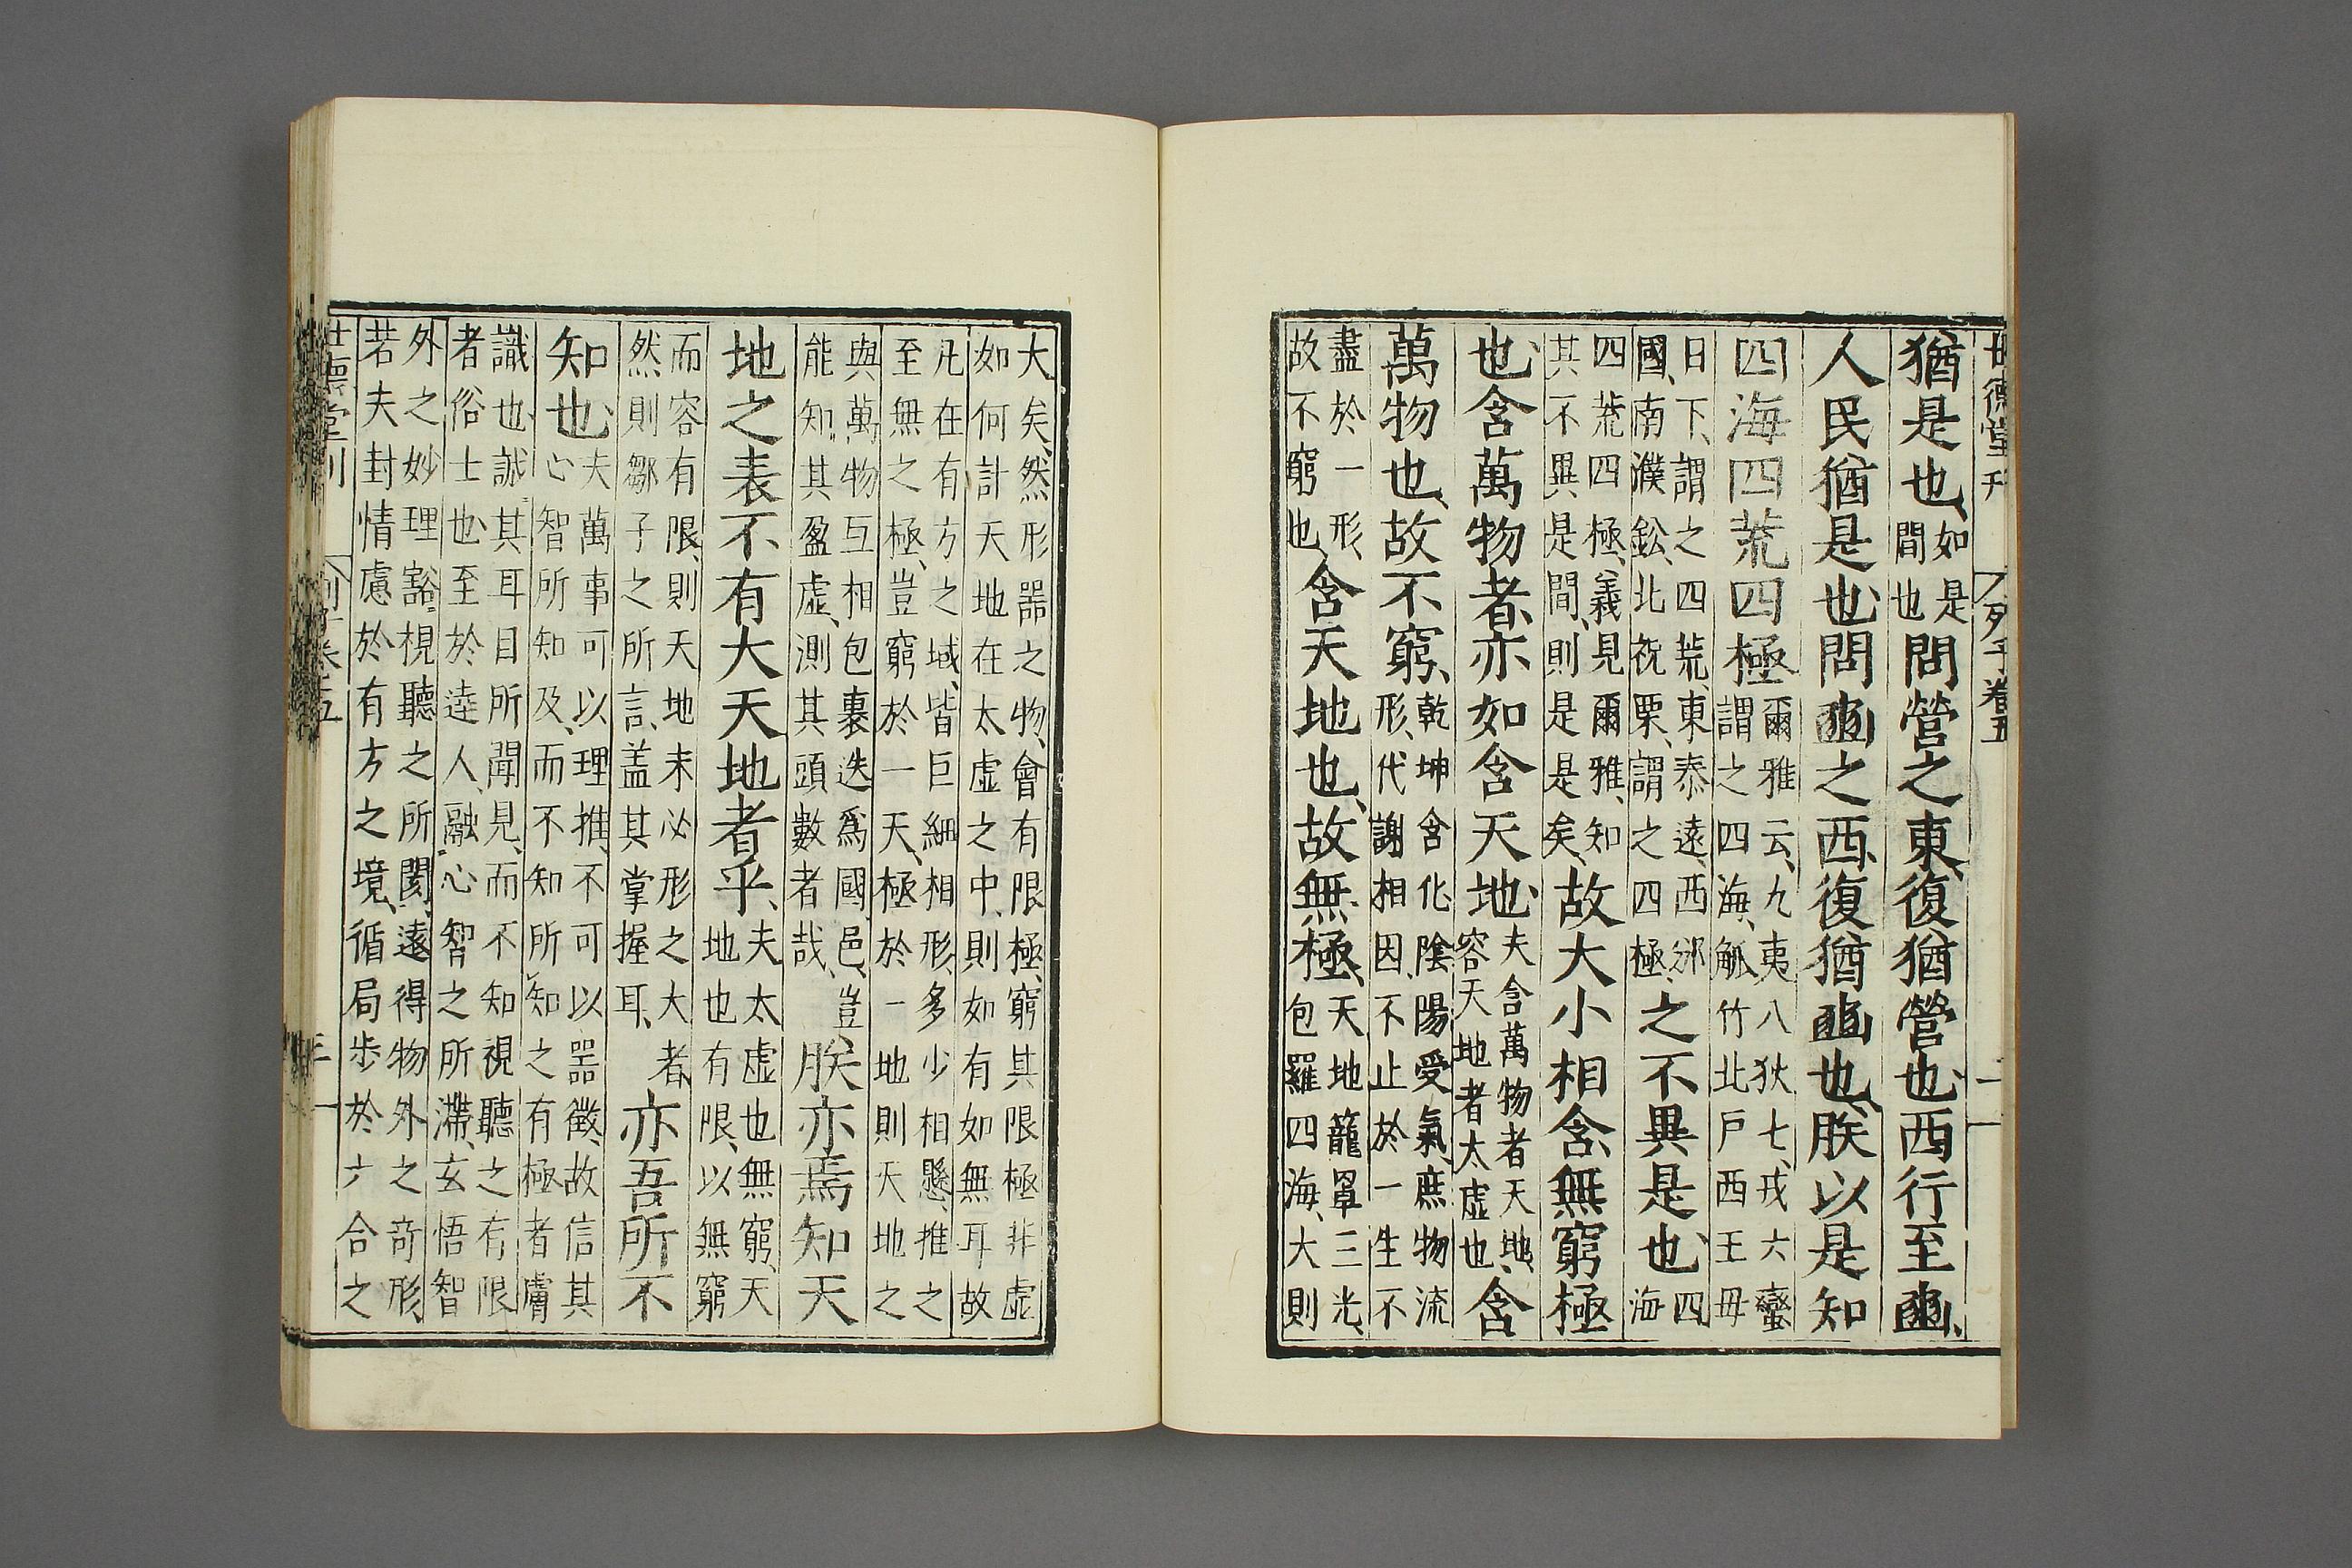 世德堂刊 列子卷五 二
猶是也如是間也問營之東復猶營也西行至豳
人民猶是也問豳之西復猶豳也朕以是知
四海四荒四極爾雅云九夷八狄七戎六蠻謂之四海觚竹北戶西王毋
日下謂之四荒東泰遠西邠國南濮鈆北祝栗謂之四極之不異是也四海
四荒四極義見爾雅知其不異是間則是是矣故大小相含無窮極
也含萬物者亦如含天地夫含萬物者天地容天地者太虛也含
萬物也故不窮乾坤含化陰陽受氣庶物流形代謝相因不止於一生不
盡於一形故不窮也含天地也故無極天地籠罩三光包羅四海大則
大矣然形器之物會有限極窮其限極非虛如何計天地在太虛之中則如有如無耳故
凡在有方之域皆巨細相形多少相懸推之至無之極豈窮於一天極於一地則天地之
與萬物互相包裹迭爲國邑豈能知其盈虛測其頭數者哉朕亦焉知天
地之表不有大天地者乎夫太虛也無窮天地也有限以無窮
而容有限則天地未必形之大者然則鄒子之所言盖其掌握耳亦吾所不
知也夫萬事可以理推不可以器徵故信其心智所知及而不知所知之有極者膚
識也誠其耳目所聞見而不知視聽之有限者俗士也至於達人融心智之所滯玄悟智
外之妙理豁視聽之所閡遠得物外之奇形若夫封情慮於有方之境循局步於六合之
世德堂刊 列子卷五 三